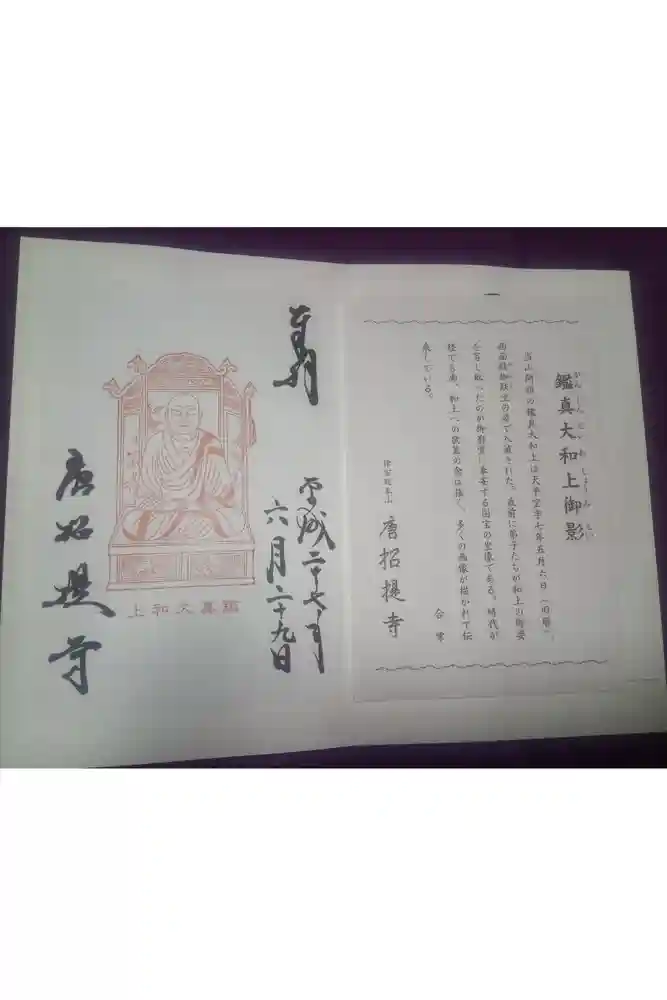 鑑真大和上御影
がんじんだいわじょうみえい
当山開祖の鑑真大和上は天平宝字七年五月六日（旧暦）、
西面結跏趺坐の姿で入滅された。直前に弟子たちが和上の御姿
を写し取ったのが御影堂に奉安する国宝の坐像である。時代が
経ても尚、和上への敬慕の念は深く、多くの画像が描かれて伝
来している。
合掌
律宗総本山
唐招提寺
奉拝
平成二十七年
六月二十九日
上和大真鑑
唐招提寺